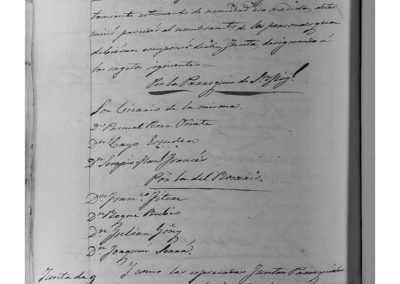 tamiento estimando de necesidad esta medida, deter
minó proceder al nombramto. de las personas que
debieran componer dicha Junta, designando á
los sugetos siguientes
Por la Parroquia de Sn.
Son Vicario de la misma.
Dn. Pascual Ruiz Oñate
Dn. Cayo Escudero
Dn. Francés
Por la del Rosario.
Dn. Franco.
Dn. Roque Rubio
Dn. Julian
Dn. Joaquin
Junta de Y como las espresadas Juntas Parroquiales